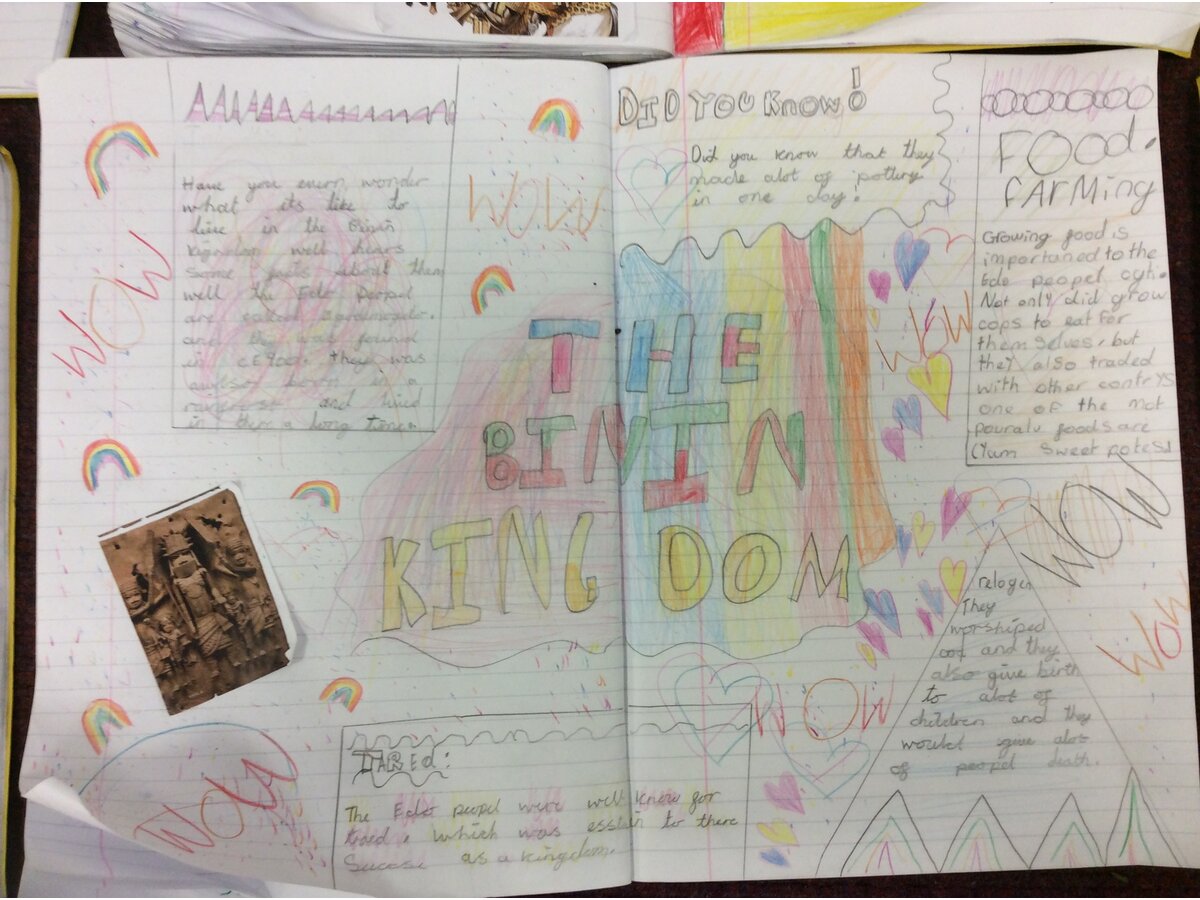 Have you enurn wonder
what its like to
live in the Binin
Kingdom well hears
some facts about them
well the Edo peopel
are called
and they was found
in c.E 900. they was
born in a
rainforest and lived
in there a long time.
WOW
WOW
DID YOU KNOW!
Did you know that they
made alot of pottery
in one day!
THE
BININ
KINGDOM
WOW
FOOD.
FARMing
Growing food is
importaned to the
Edo peopel cyti.
Not only did grow
cops to eat for
them selves, but
they also traded
with other contrys
one of the mot
pouralu foods are
(Yam sweet potes)
WOW
WOW
relogen
They
worshiped
and they
also give birth
to alot of
children and they
would give alot
of peopel death.
WOW
WOW
TARED:
The Edo peopel were well know for
traed, which was essltin to there
Sucase as a kingdom.